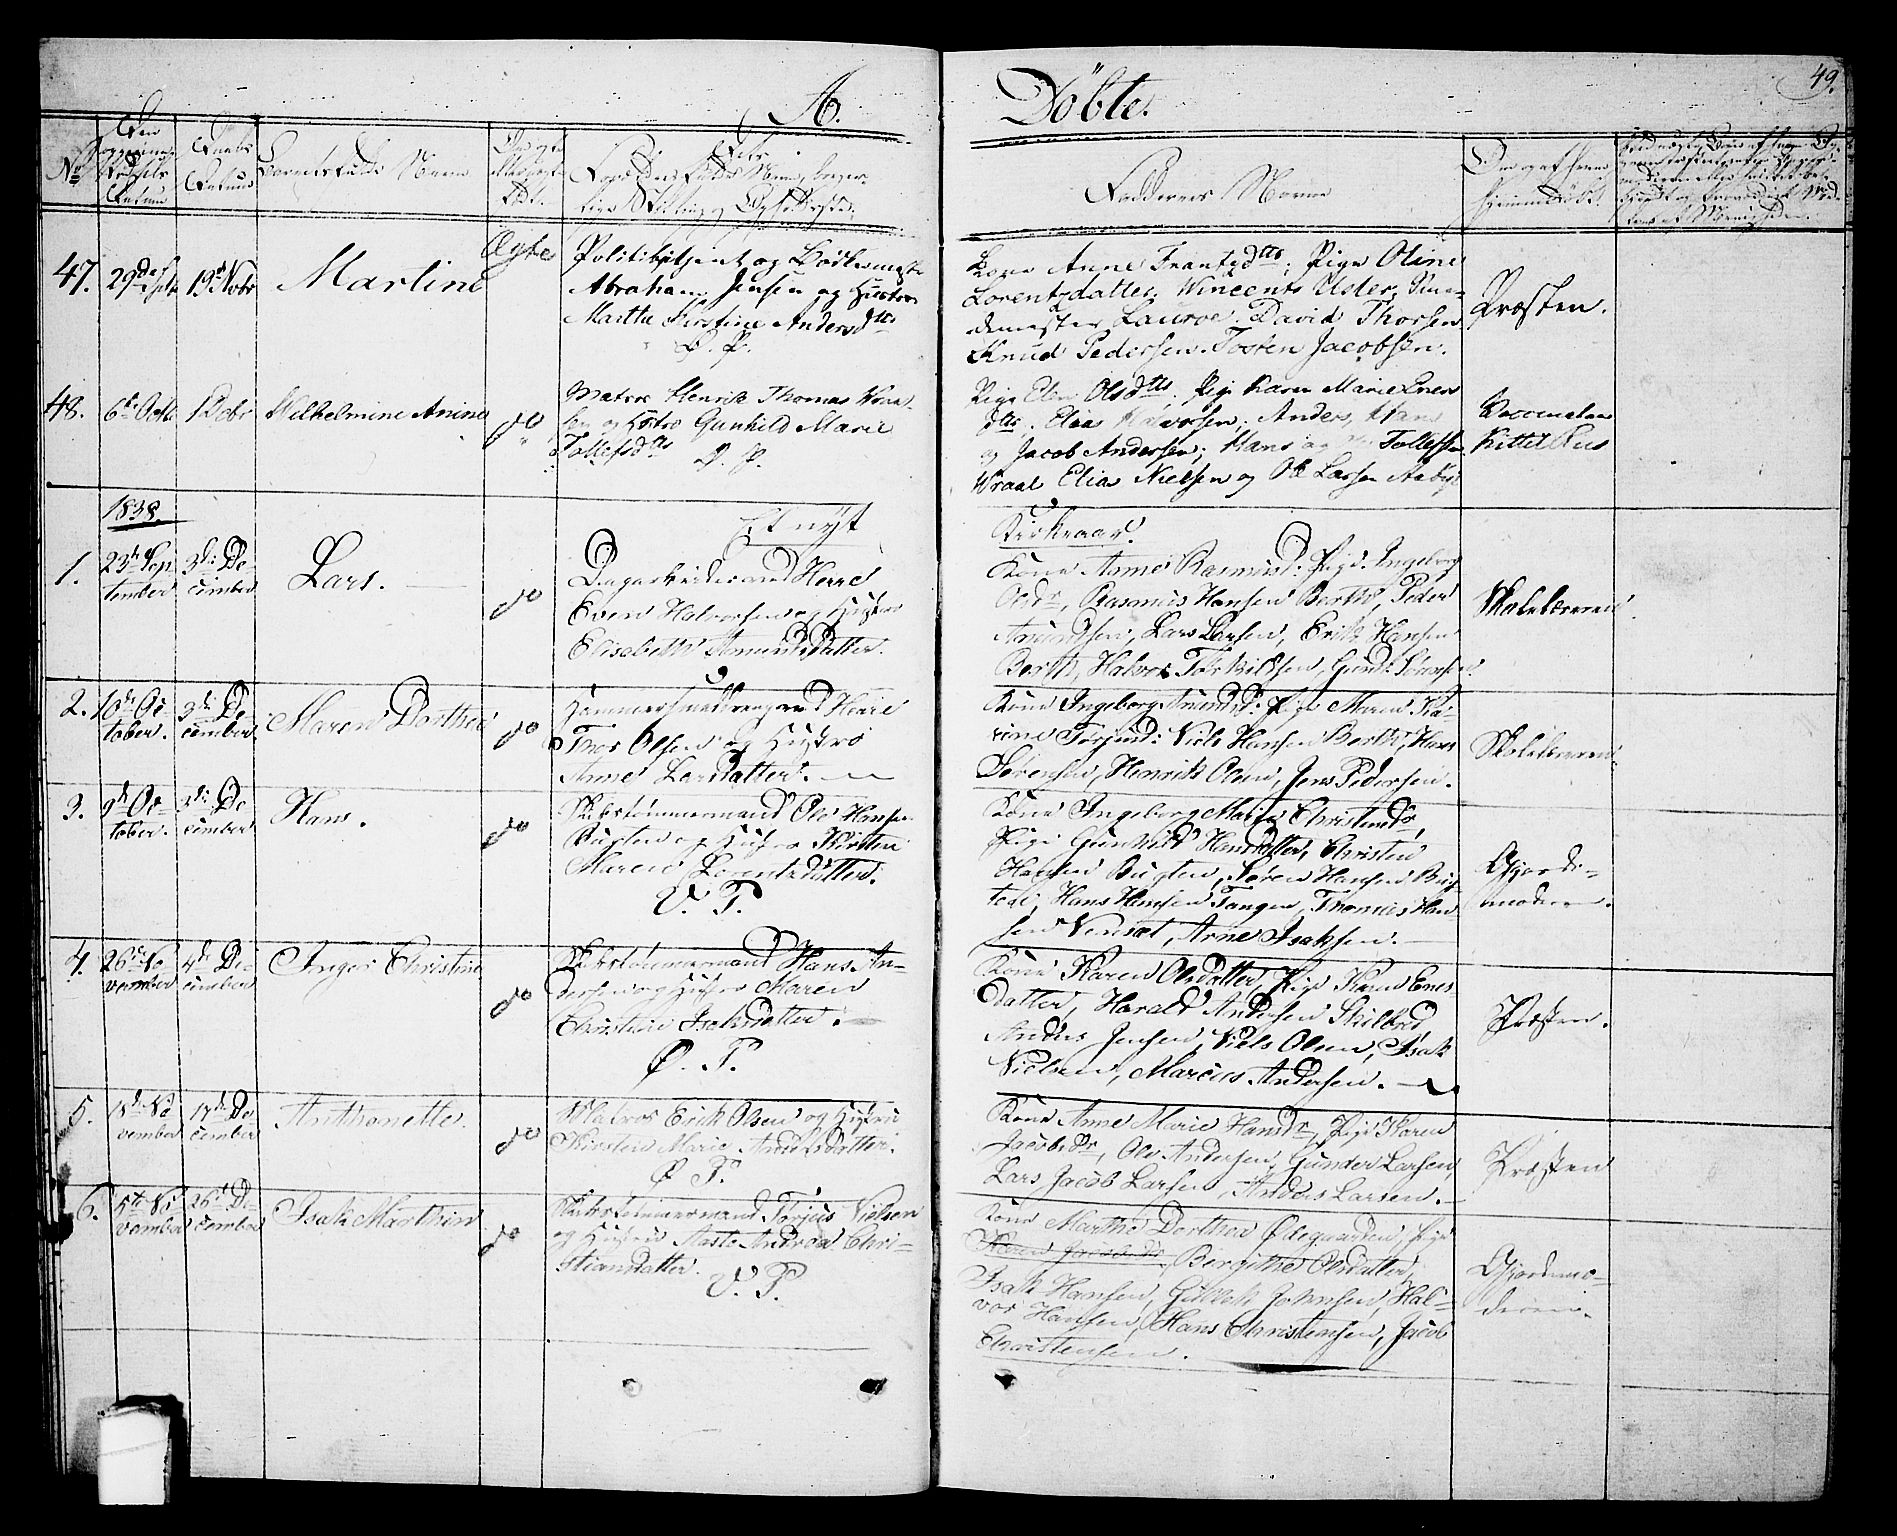 A.
Döbte.
49.
No
Barnets fulde Navn
Faddernes Navne
47.
29de Septr
19de Novbr
Martine
Ægte
Politibetjent og Bödkermester
Abraham Jensen og Hustroe
Marthe Kirstine Andersdtr
Ø. P.
Kone Anne Frantsdtr; Pige Oline
Lorentzdatter, Wincents Uster, Sme-
demester Lauroe. David Thorsen
Knud Pedersen. Tosten Jacobsen.
Præsten.
48.
6te Octb
1 Debr
Wilhelmine Anine
do
Matros Henrik Thomas
og Hstro Gunhild Marie
Tollefsdtr
Ø. P.
Pige Elen Olsdtr. Pige Karen Marie
dtr. Elias Halvorsen; Anders, Hans
og Jacob Andersen; Hans og Tollefsen
Wraal Elias Nielsen og Ole Larsen
Kittil
1838.
Et nyt
Kirkeaar.
1.
23de Sep-
tember
3de De-
cember
Lars.
do
Dagarbeidermand Herre
Even Halvorsen og Hustro
Elisabeth Amundsdatter.
Kone Anne Rasmusd: Pige Ingeborg
Olsdr, Rasmus Hansen Berth, Peder
Amundsen, Lars Larsen, Erik Hansen
Berth, Halvor Torkildsen, Gund: Sörensen.
Skolelæreren.
2.
10de Oc-
tober.
3de De-
cember
Maren Dorthea
do
Hammersmedsvend Herre
Thor Olsen og Hustro
Anne Larsdatter.
Kone Ingeborg Amundsd: Pige Maren Ka-
rine Torjusd: Niels Hansen Berth, Hans
Sörensen, Henrik Olsen, Jens Pedersen.
Skolelæreren.
3.
9de Oc-
tober.
3de De-
cember
Hans.
do
Skibstömmermand Ole Hansen
Bugten og Hustro Kirsten
Maren Lorentzdatter.
V. P.
Kone Ingeborg Marie Christensdr,
Pige Gunhild Hansdatter, Christen
Hansen Bugten, Sören Hansen Bug-
ten, Hans Hansen Tangen, Thomas Han-
sen Versaet, Arne Isaksen.
Gjorde-
moderen.
4.
26de No-
vember
4de De-
cember
Inger Christine
do
Skibstömmermand Hans An-
dersen og Hustro Maren
Christine Isaksdatter.
Ø. P.
Kone Karen Olsdatter, Pige Karen Enes-
datter, Harald Andersen Skilbred
Anders Jensen, Niels Olsen, Isak
Nielsen, Marcus Andersen.
Præsten.
5.
18de No-
vember
17de De-
cember
Anthonette.
do
Matros Erik Olsen og Hustru
Kirsten Marie Amundsdatter.
Ø. P.
Kone Anne Marie Hansdr, Pige Karen
Jacobsdr, Ole Andersen, Gunder Larsen,
Lars Jacob Larsen, Anders Larsen.
Præsten
6.
5te No-
vember
26de De-
cember
Isak Marthin.
do
Skibstömmermand Torjus Nielsen
og Hustru Aaste Andrea Chri-
stiansdatter.
V. P.
Kone Marthe Dorthea Ödegaarden, Pige
Karen Jacobsdr, Birgithe Olsdatter,
Isak Hansen, Gullek Johnsen, Hal-
vor Hansen, Hans Christensen, Jacob
Christensen.
Gjordemo-
deren.